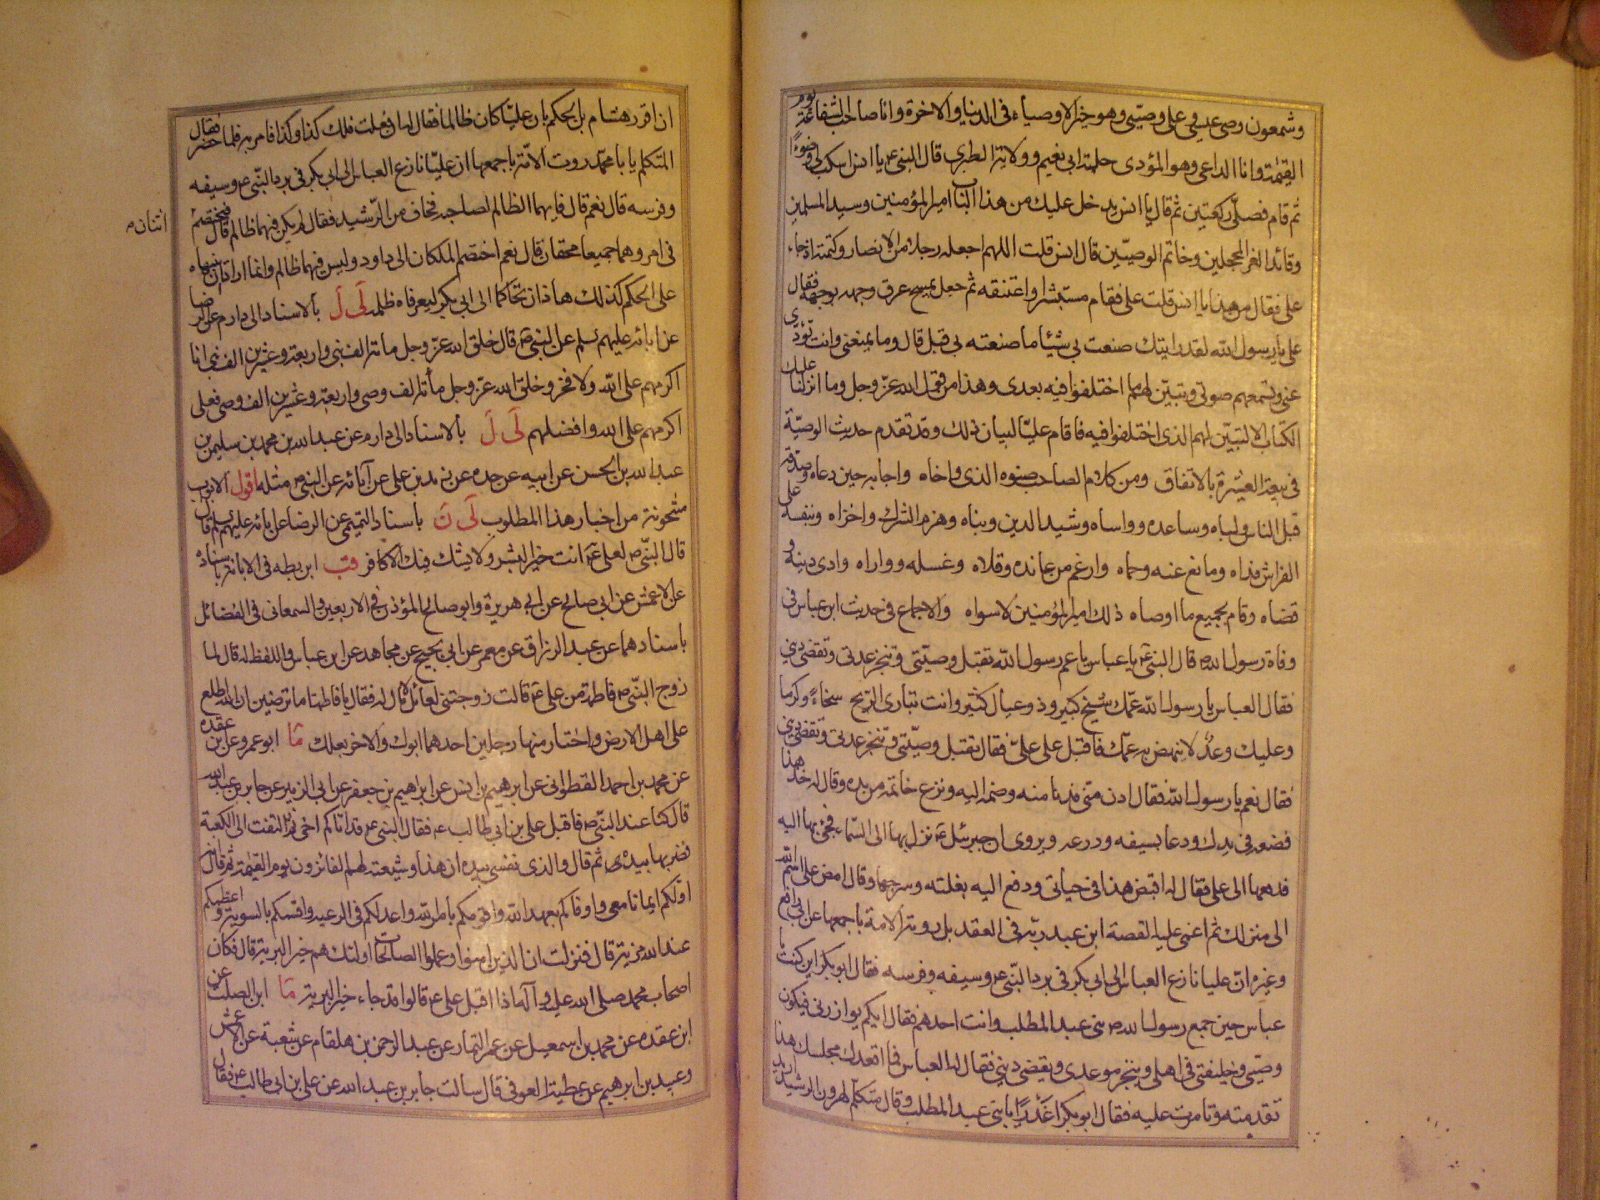 وشمعون وصى عيسى وعلى وصيى وهو خير الاوصياء فى الدنيا والاخرة وانا صاحب الشفاعة يوم
القيمة وانا الداعى وهو المؤدى حلية ابى نعيم وولاية الطبرى قال النبى ع يا انس اسكب لى وضوءا
ثم قام فصلى ركعتين ثم قال يا انس يدخل عليك من هذا الباب امير المؤمنين وسيد المسلمين
وقائد الغر المحجلين وخاتم الوصيين قال انس قلت اللهم اجعله رجلا من الانصار وكتمته اذ جاء
على فقال من هذا يا انس قلت على فقام مستبشرا واعتنقه ثم جعل يمسح عرق وجهه بوجهه فقال
على يا رسول الله لقد رايتك صنعت بى شيئا ما صنعته بى قبل قال وما يمنعنى وانت تؤدى
عنى وتسمعهم صوتى وتبين لهم ما اختلفوا فيه بعدى وهذا من قول الله عز وجل وما انزلنا عليك
الكتاب الا لتبين لهم الذى اختلفوا فيه فاقام عليا لبيان ذلك وقد تقدم حديث الوصية
فى بيعة العشيرة بالاتفاق ومن كلام الصاحب صنوه الذى واخاه واجابه حين دعاه وصدقه
قبل الناس ولباه وساعده وواساه وشيد الدين وبناه وهزم الشرك واخزاه وبنفسه على
الفراش فداه ومانع عنه وحماه وارغم من عانده وقلاه وغسله وواراه وادى دينه و
قضاه وقام بجميع ما اوصاه ذلك امير المؤمنين لا سواه والاجماع فى حديث ابن عباس فى
وفاة رسول الله ص قال النبى ع يا عباس يا عم رسول الله تقبل وصيتى وتنجز عدتى وتقضى دينى
فقال العباس يا رسول الله عمك شيخ كبير وذو عيال كثير وانت تبارى الريح سخاء وكرما
وعليك وعد لا ينهض به عمك فاقبل على على فقال تقبل وصيتى وتنجز عدتى وتقضى دينى
فقال نعم يا رسول الله فقال ادن منى فدنا منه وضمه اليه ونزع خاتمه من يده وقال له خذ هذا
فضعه فى يدك ودعا بسيفه ودرعه ويروى ان جبرئيل ع نزل بها الى السماء فجئ بها اليه
فدفعها الى على فقال له اقبض هذا فى حياتى ودفع اليه بغلته وسرجها وقال امض على اسم الله
الى منزلك ثم اغمى عليه القصة ابن عبد ربه فى العقد بل روته الامة باجمعها عن ابى رافع
وغيره ان عليا نازع العباس الى ابى بكر فى برد النبى ع وسيفه وفرسه فقال ابو بكر اين كنت يا
عباس حين جمع رسول الله ص بنى عبد المطلب وانت احدهم فقال ايكم يوازرنى فيكون
وصيى وخليفتى فى اهلى وينجز موعدى ويقضى دينى فقال له العباس فما اقعدك مجلسك هذا
تقدمته وتامرت عليه فقال ابو بكر اغدرا يا بنى عبد المطلب وقال متكلم لهرون الرشيد اريد
ان اقرر هشام بن الحكم بان عليا كان ظالما فقال له ان فعلت فلك كذا وكذا فامر به فلما حضر فقال
المتكلم يا با محمد روت الامة باجمعها ان عليا نازع العباس الى ابى بكر فى برد النبى ع وسيفه
وفرسه قال نعم قال فايهما الظالم لصاحبه فخاف من الرشيد فقال لم يكن فيهما ظالم قال فيختصم
اثنان م
فى امر وهما جميعا محقان قال نعم اختصم الملكان الى داود وليس فيهما ظالم وانما ارادا ان ينبهاه
على الحكم كذلك هذان تحاكما الى ابى بكر ليعرفاه ظلمه لى ل بالاسناد الى دارم عن الرضا
عن ابائه عليهم السلم عن النبى ص قال خلق الله عز وجل مائة الف نبى واربعة وعشرين الف نبى انا
اكرمهم على الله ولا فخر وخلق الله عز وجل مائة الف وصى واربعة وعشرين الف وصى فعلى
اكرمهم على الله وافضلهم لى ل بالاسناد الى دارم عن عبد الله بن محمد بن سليمن بن
عبد الله بن الحسن عن ابيه عن جده عن زيد بن على عن آبائه عن النبى ص مثله اقول الابواب
مشحونة من اخبار هذا المطلوب لى ن باسناد التميمى عن الرضا عن ابائه عليهم السلم قال
قال النبى ص لعلى ع انت خير البشر ولا يشك فيك الا كافر قب ابن بطه فى الابانة باسناده
عن الاعمش عن ابى صالح عن ابى هريرة وابو صالح المؤذن فى الاربعين والسمعانى فى الفضائل
باسنادهما عن عبد الرزاق عن معمر عن ابى نجيح عن مجاهد عن ابن عباس واللفظ له قال لما
زوج النبى ص فاطمة من على ع قالت زوجتنى لعائل لا مال له فقال يا فاطمة اما ترضين ان الله اطلع
على اهل الارض واختار منها رجلين احدهما ابوك والاخر بعلك ما ابو عمرو عن ابن عقده
عن محمد بن احمد القطوانى عن ابرهيم بن انس عن ابرهيم بن جعفر عن ابى الزبير عن جابر بن عبد الله
قال كنا عند النبى ص فاقبل على بن ابى طالب ع فقال النبى ع قد اتاكم اخى ثم التفت الى الكعبة
فضربها بيده ثم قال والذى نفسى بيده ان هذا وشيعته لهم الفائزون يوم القيمة ثم قال انه
اولكم ايمانا معى واوفاكم بعهد الله واقومكم بامر الله واعدلكم فى الرعية واقسمكم بالسوية واعظمكم
عند الله مزية قال فنزلت ان الذين امنوا وعملوا الصالحات اولئك هم خير البرية قال فكان
اصحاب محمد صلى الله عليه وآله اذا اقبل على ع قالوا قد جاء خير البرية ما ابن الصلت عن
ابن عقده عن محمد بن اسمعيل عن عم التمار عن عبد الرحمن بن هلقام عن شعبة عن الاعمش
وعبيد بن ابرهيم عن عطية العوفى قال سالت جابر بن عبد الله عن على بن ابى طالب ع فقال